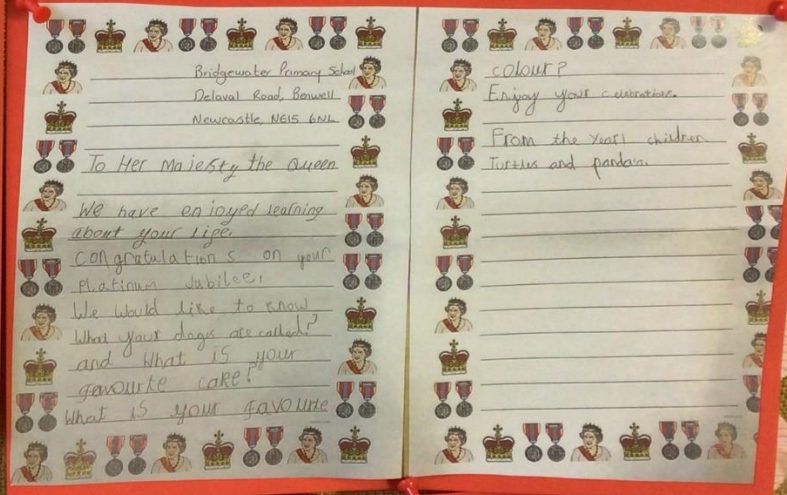 Bridgewater Primary School
Delaval Road, Benwell
Newcastle, NE15 6NL
To Her Majesty the Queen
We have enjoyed learning
about your life.
Congratulations on your
Platinum Jubilee.
We would like to know
What your dogs are called?
and What is your
favourite cake?
What is your favourite
colour?
Enjoy your celebrations.
From the Year1 children
Turtles and pandas.